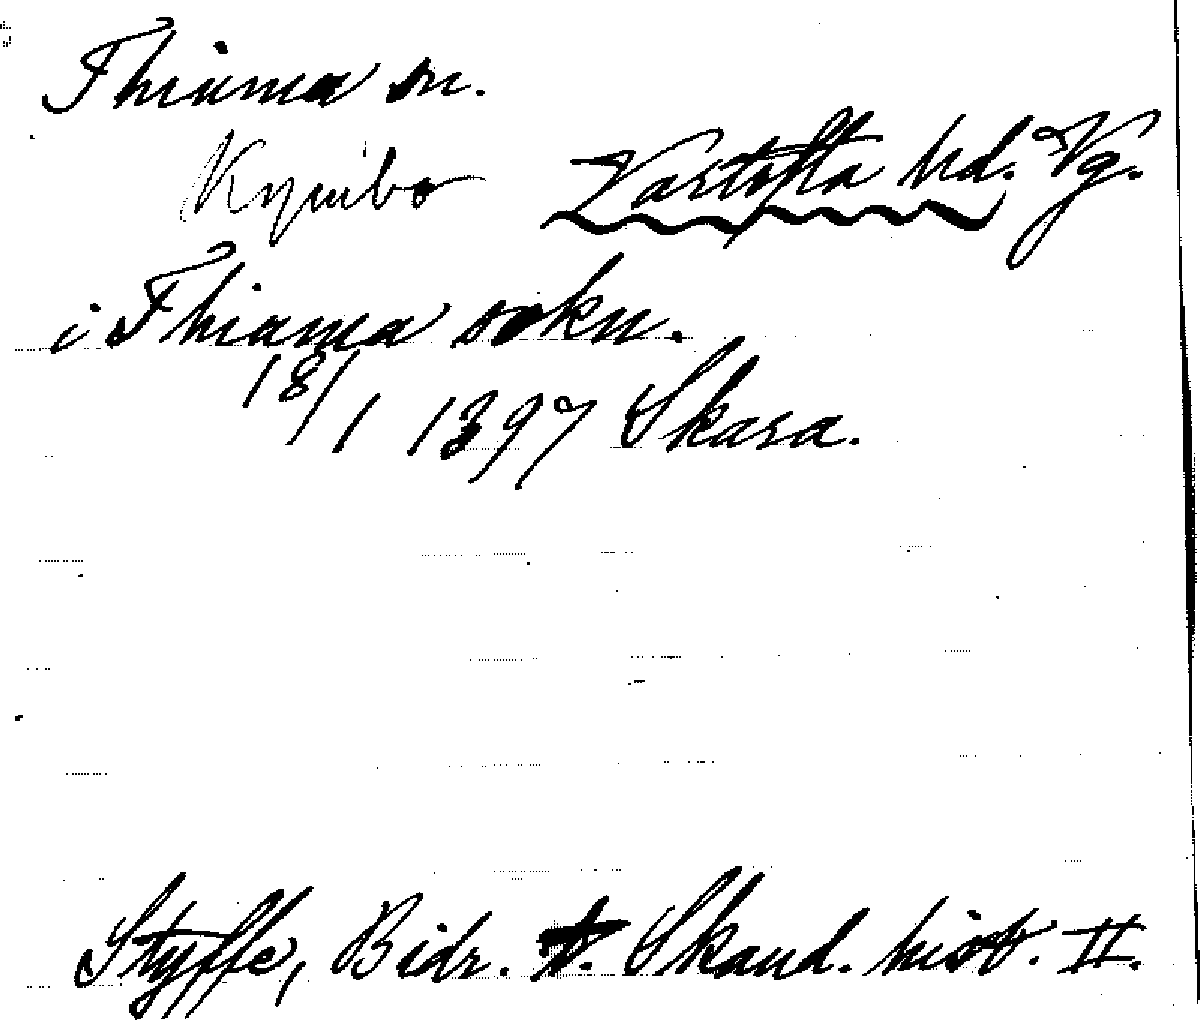 Thiuma sn.
Kymbo Vartofta hd. Vg.
i Thiuma sokn.
18/1 1397 Skara.
Styffe, Bidr. t. Skand. hist. II.